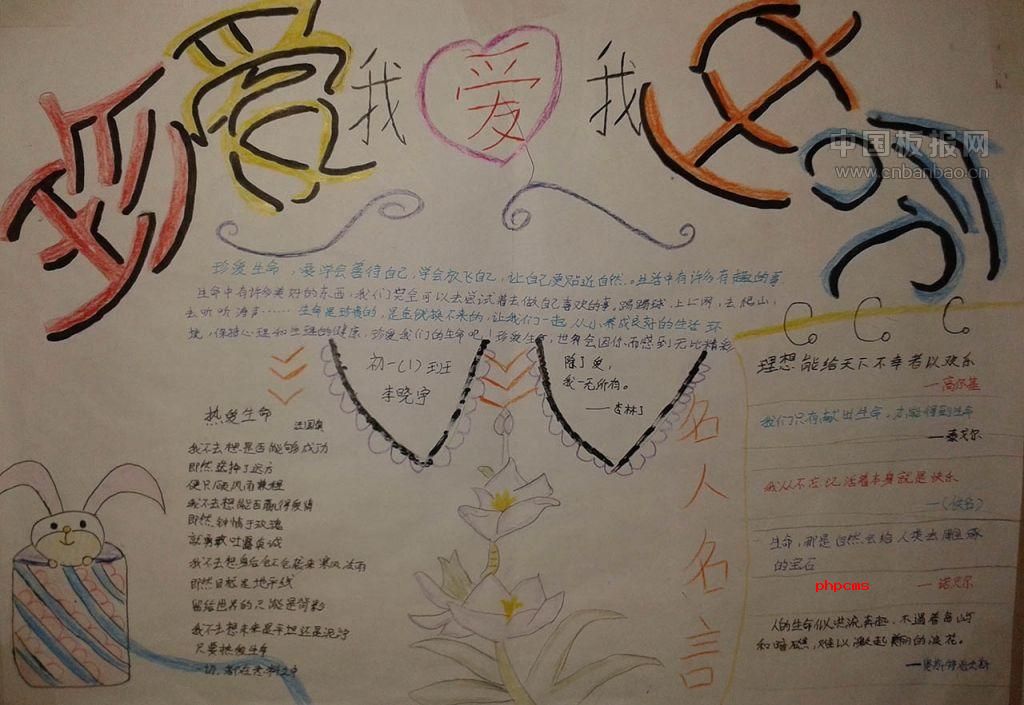 珍爱我爱我生命
中国板报网
www.cnbanbao.cn
珍爱生命，要学会善待自己，学会放飞自己，让自己更贴近自然。生活中有许多有趣的事
生命中有许多美好的东西，我们完全可以去尝试着去做自己喜欢的事，踢踢球，上上网，去爬山，
去听听涛声……生命是珍贵的，是金钱换不来的，让我们一起从小养成良好的生活环
境，保持心理和生理的健康，珍爱我们的生命吧！珍爱生命，世界会因你而感到无比精彩
初一（1）班
李晓宇
除了爱，
我一无所有。
——杏林子
热爱生命
汪国真
我不去想是否能够成功
即然选择了远方
便只顾风雨兼程
我不去想能否赢得爱情
即然钟情于玫瑰
就勇敢吐露真诚
我不去想身后会不会袭来寒风冷雨
即然目标是地平线
留给世界的只能是背影
我不去想未来是平坦还是泥泞
只要热爱生命
一切，都在意料之中
名人名言
理想能给天下不幸者以欢乐
—高尔基
我们只有献出生命，才能得到生命
—泰戈尔
我从不忘记活着本身就是快乐
—（佚名）
生命，那是自然会给人类去雕琢
的宝石
—诺贝尔
phpcms
人的生命似洪流奔腾，不遇着岛屿
和暗礁，难以激起美丽的浪花。
—奥斯特洛夫斯